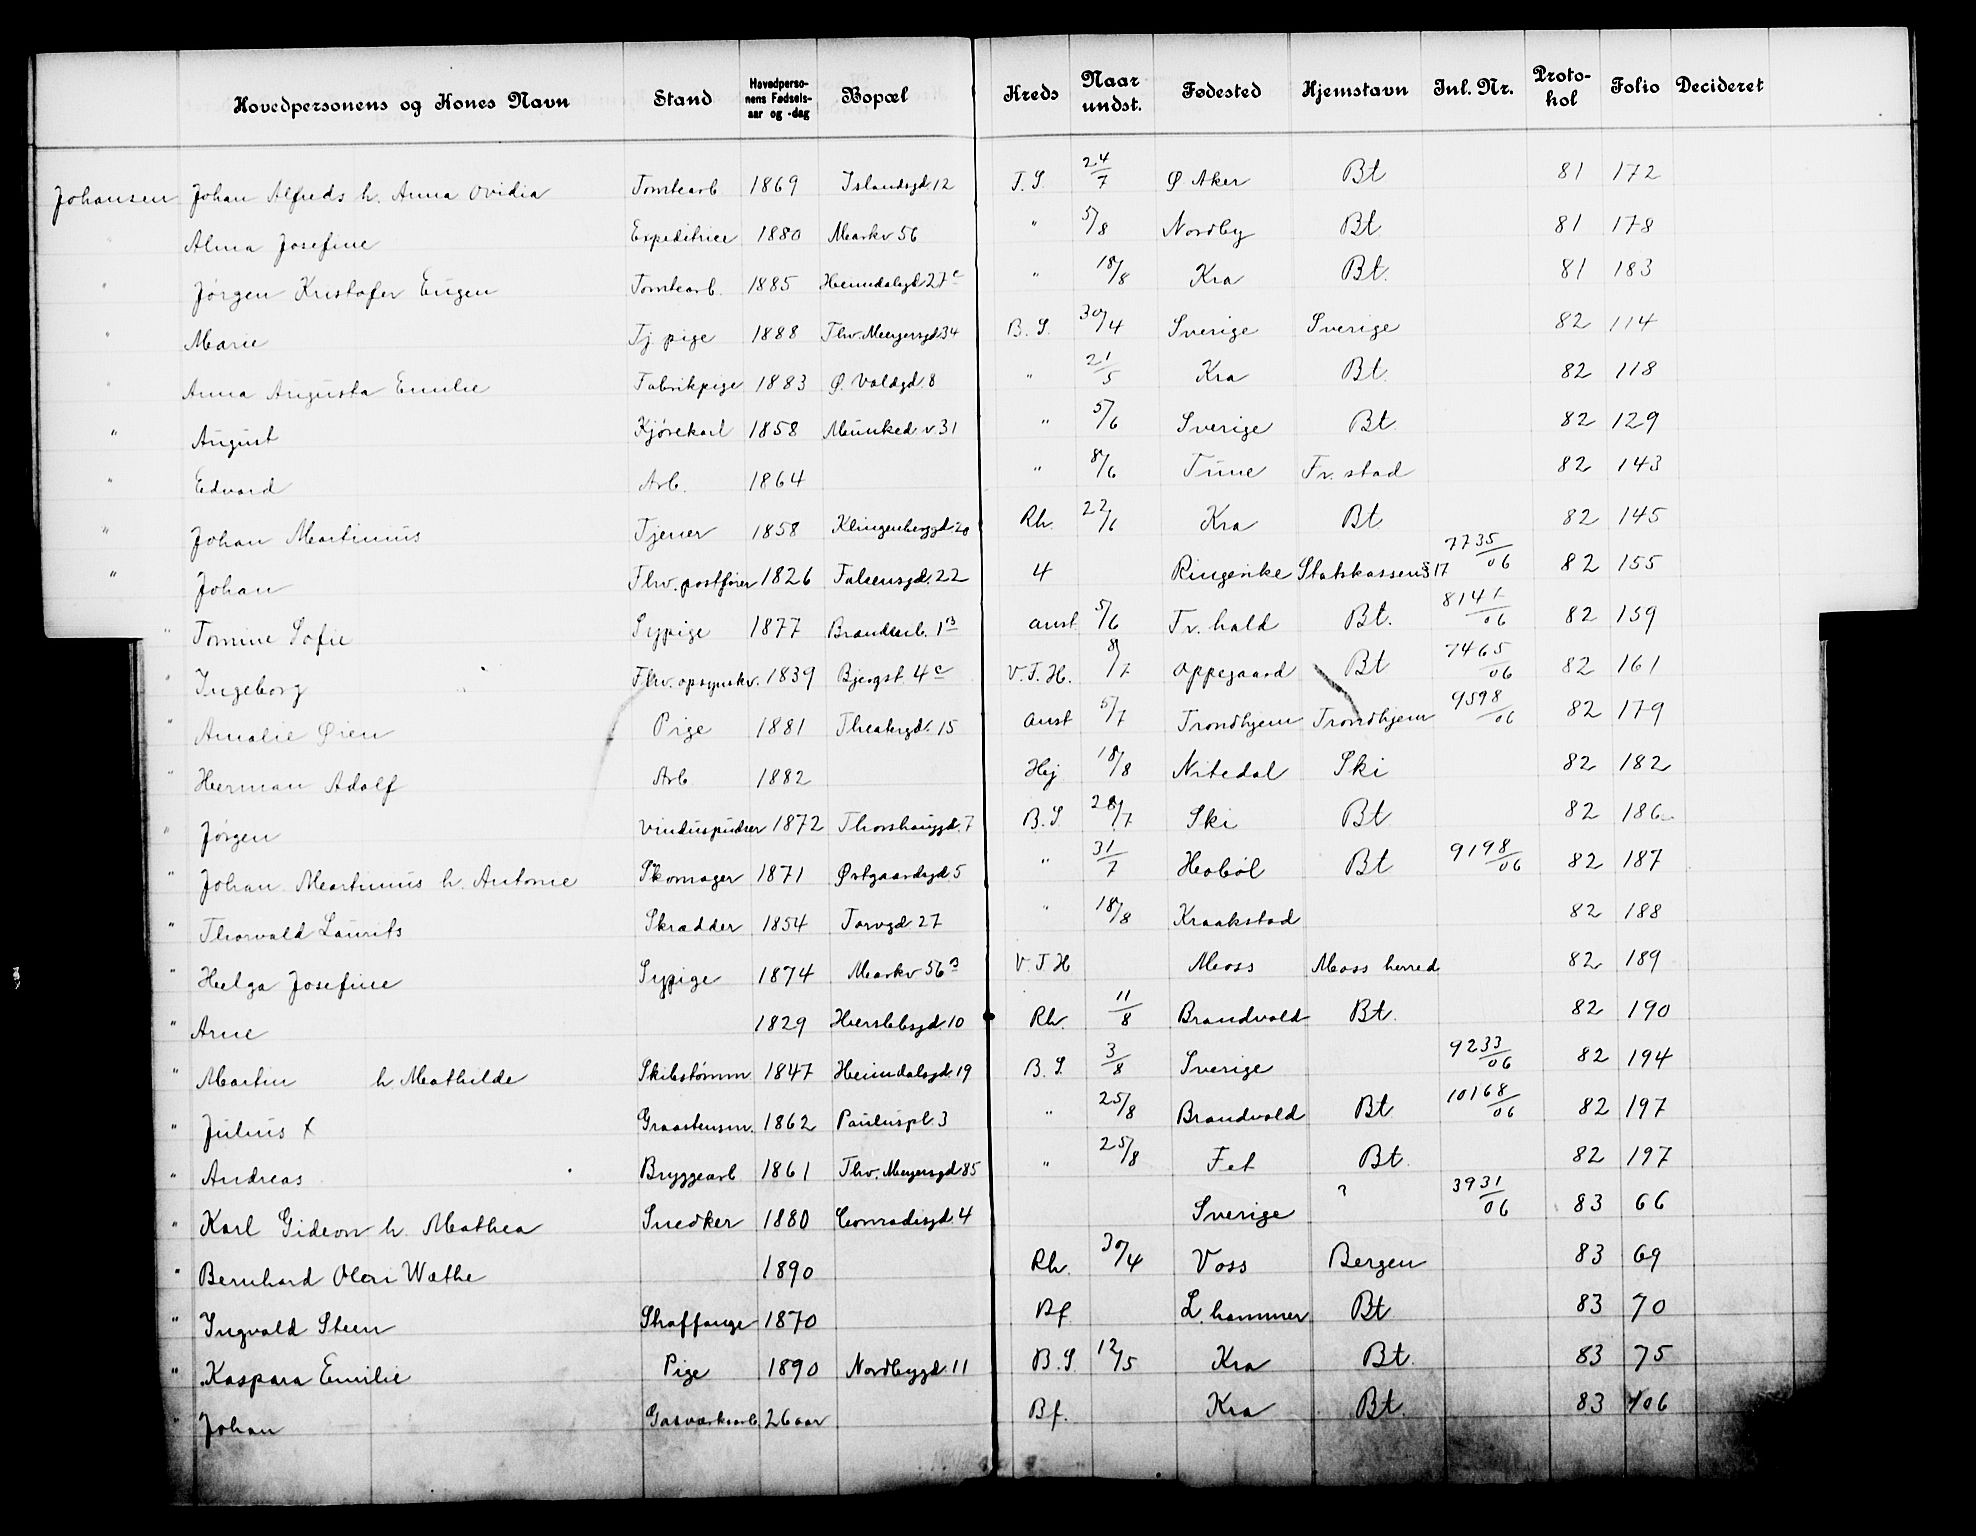 Hovedpersonens og Kones Navn Stand Hovedpersonens Fødselsaar og -dag Bopæl Kreds Naar undst. Fødested Hjemstavn Inl. Nr. Protokol Folio Decideret
Johansen Johan Alfreds h. Anna Ovidia Tomtearb 1869 Islandsgd 12 T. S. 24/7 Ø. Aker Bt 81 172
" Alma Josefine Expeditrice 1880 Markv 56 " 5/8 Nordby Bt 81 178
" Jørgen Kristofer Eugen Tomtearb. 1885 Heimdalsgd 27c " 18/8 Kra Bt. 81 183
" Marie Tj pige 1888 Thv. Meyersgd 34 B. S. 30/4 Sverige Sverige 82 114
" Anna Augusta Emilie Fabrikpige 1883 Ø. Voldgd. 8 " 21/5 Kra Bt. 82 118
" August Kjørekarl 1858 Munked v 31 " 5/6 Sverige Bt. 82 129
" Edvard Arb. 1864 " 8/6 Tune Fr. stad 82 143
" Johan Martinius Tjener 1858 Klingenberggd 20 Rh. 22/6 Kra Bt 82 145
" Johan Fhv. postfører 1826 Falsensgd. 22 4 Ringerike Statskassen § 17 7735/06 82 155
" Tomine Sofie Sypige 1877 Brandsarb. 1B anst 5/6 Fr. hald Bt. 8141/06 82 159
" Ingeborg " Fhv. opsynskv. 1839 Bjergst. 4c V. T. H. 8/7 Oppegaard Bt 7465/06 82 161
" Amalie Øien Pige 1881 Theatergd. 15 anst 5/7 Trondhjem Trondhjem 9598/06 82 179
" Herman Adolf Arb 1882 Hej 18/8 Nitedal Ski 82 182
" Jørgen Vinduspudser 1872 Thorshauggd. 7 B. S. 28/7 Ski Bt 82 186
" Johan Martinius h. Antonie Skomager 1871 Østgaardsgd 5 " 31/7 Hobøl Bt 9198/06 82 187
" Thorvald Laurits Skrædder 1854 Torvgd 27 " 18/8 Kraakstad 82 188
" Helga Josefine Sypige 1874 Markv 56B V. T. H Moss Moss herred 82 189
" Arne 1829 Herslebsgd. 10 Rh. 11/8 Brandvold Bt. 82 190
" Martin h Mathilde Skibstømm 1847 Heimdalsgd. 19 B. S. 3/8 Sverige 9233/06 82 194
" Julius X Graastensm. 1862 Pauluspl. 3 " 25/8 Brandvold Bt 10168/06 82 197
" Andreas Bryggearb 1861 Thv. Meyersgd 85 " 25/8 Fet Bt. 82 197
" Karl Gideon h. Mathea Snedker 1880 Conradisgd. 4 Sverige ? 3931/06 83 66
" Bernhard Olai Wæthe 1890 Rh. 30/4 Voss Bergen 83 69
" Ingvald Steen Straffange 1870 Bf L. hammer Bt. 83 70
" Kaspara Emilie Pige 1890 Nordbygd. 11 B. S. 12/5 Kra Bt. 83 75
" Johan Gasværksarb. 26 aar Bf. Kra Bt. 83 106